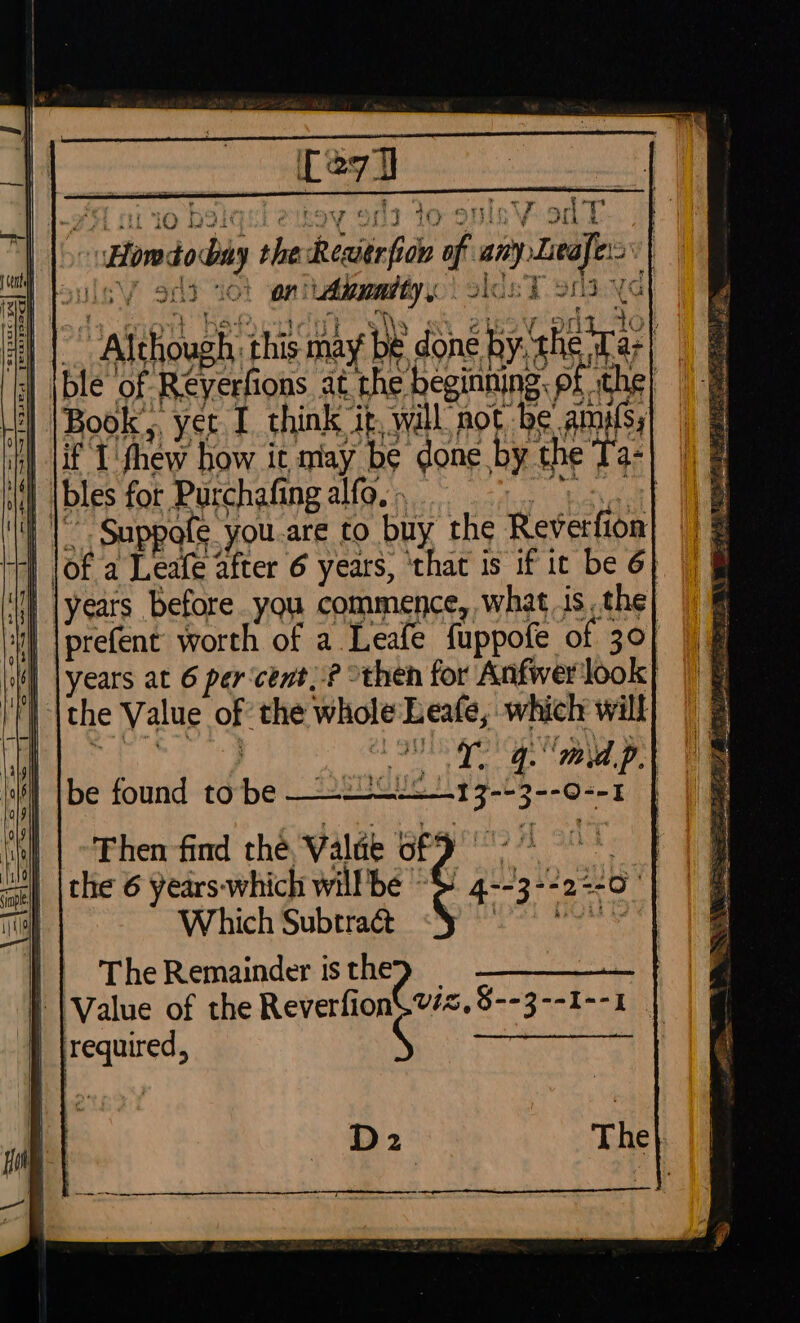 [ 27 ]
How to buy the Reverſion of any Leaſe
or Annuity.
Although this may be done by the Ta-
ble of Reverſions at the beginning of the
Book, yet I think it will not be amiſs,
if I ſhew how it may be done by the Ta-
bles for Purchaſing alſo.
Suppoſe you are to buy the Reverſion
of a Leaſe after 6 years, that is if it be 6
years before you commence, what is the
preſent worth of a Leaſe ſuppoſe of 30
years at 6 per cent. ? then for Anſwer look
the Value of the whole Leaſe, which will
Y. q. m. d. p.
be found to be 13--3--0--1
Then find the Value of
the 6 years which will be 4--3--2--0
Which Subtract
The Remainder is the
Value of the Reverſion viz. 8--3--1--1
required,
D 2 The